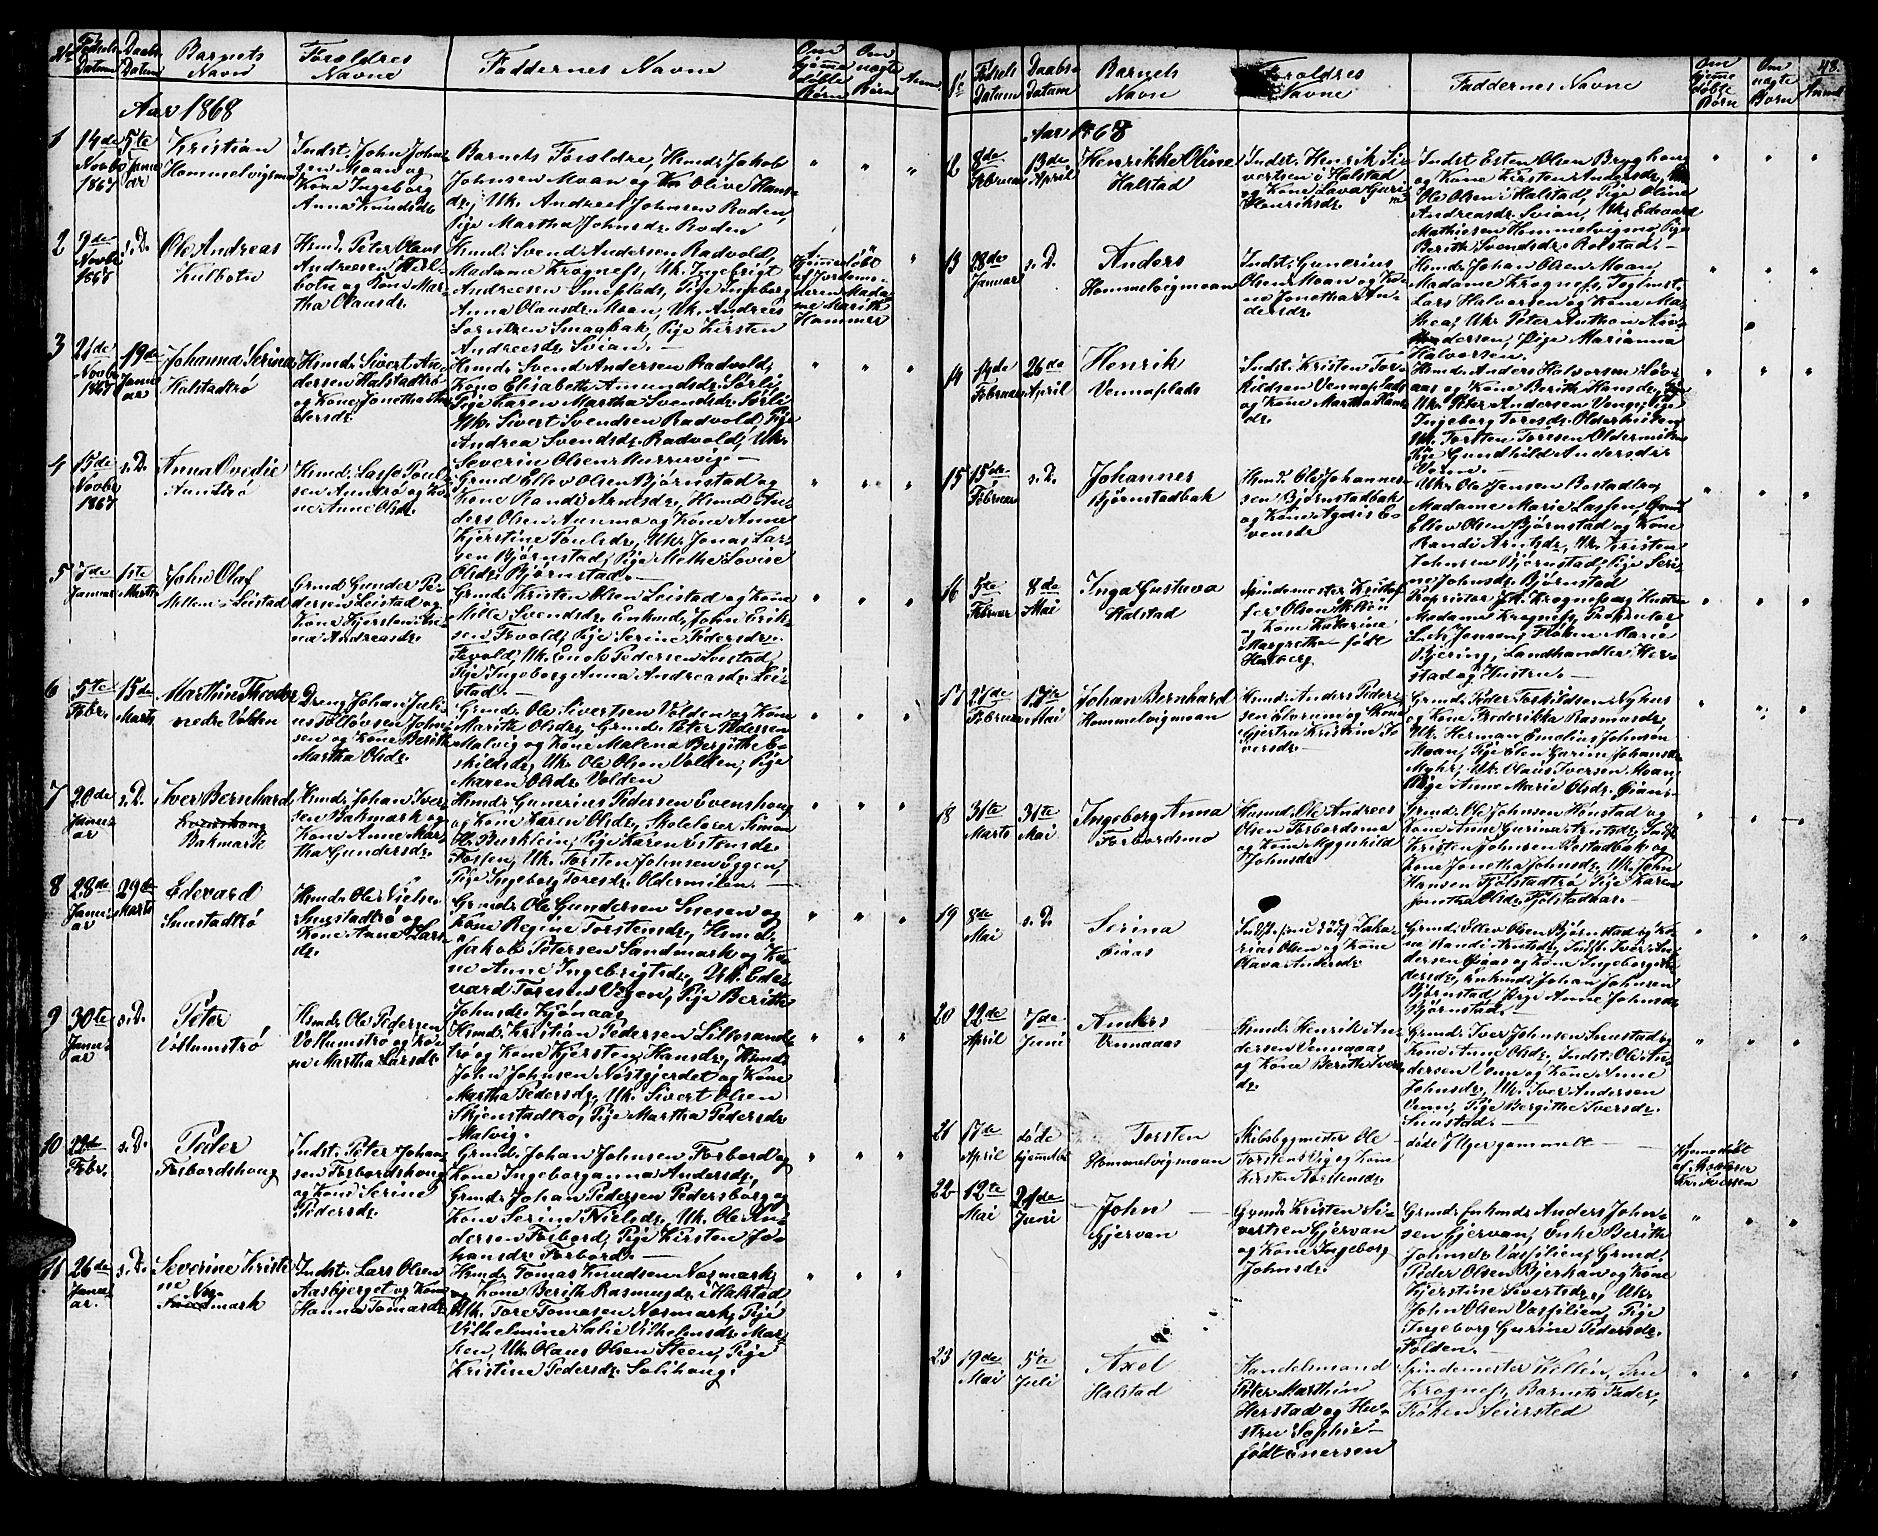 No Fødsels Datum Daabs Datum Barnets Navn Forældres Navne Faddernes Navne Om hjemme døbte Børn Om uægte Børn Anm.
Aar 1868
1 14de Novbr 1867 5te Januar
Kristian
Hommelvigsmo
Indst. John John-
sen Moan og
Kone Ingeborg
Anna Knudsdr.
Barnets Forældre, Hmd. Jakob
Johnsen Moan og Kone Olive Hans-
dr., Uk. Andreas Johnsen Roden,
Pige Martha Johnsdr. Roden
2 9de Novbr 1867 s. D.
Ole Andreas
Kulbotn
Hmd. Peter Olaus
Andreesen Kul-
botn og Kone Mar-
tha Olausdr.
Hmd. Svend Andersen Radvold,
Madame Krogness, Uk. Ingebrigt
Andreesen Smeplads, Pige Ingeborg
Anna Olausdr. Moan, Uk. Andreas
Sørntzen Smaabak, Pige Kirsten
Andreesdr. Svian.
Hjemmedøbt
af Jordemo-
deren Mada-
me Marith
Hammer
3 21de Novbr 1867 19de Januar
Johanna Serina
Halstadtrø
Hmd. Sivert An-
dersen Halstadtrø
og Kone Jonetha An-
dersdr.
Hmd. Svend Andersen Radvold,
Kone Elisabeth Amundsdr. Sørli,
Pige Karen Martha Svendsdr. Sørli
Uk. Sivert Svendsen Radvold, Pige
Andrea Svendsdr. Radvold, Uk.
Severin Olsen Murruvig.
4 15de Novbr 1867 s. D.
Anna Ovedie
Auntrø
Hmd. Lasse Pouls-
sen Auntrø og Ko-
ne Anne Olsdr.
Grmd. Ellev Olsen Bjørnstad og
Kone Randi Arntsdr., Hmd. An-
ders Olsen Aunmo og Kone Anne
Kjerstine Poulsdr., Uk. Jonas Lar-
sen Bjørnstad, Pige Methe Lovise
Olsdr. Bjørnstad.
5 7de Januar 1ste Marts
John Olaf
Mellem-Leistad
Grmd. Gunder Pe-
dersen Leistad og
Kone Kjersten Ma-
ria Andreasdr.
Grmd. Kristen Olsen Leistad og Kone
Mille Svendsdr., Enkmd. John Erik-
sen Tvold, Pige Serine Pedersdr.
Tevold, Uk. Enok Pedersen Leistad,
Pige Ingeborg Anna Andreasdr. Lei-
stad.
6 5te Febr. 15de Marts
Marthin Theodor
nedre Volden
Dreng Johan Juli-
us Tollovsen John-
sen og Kone Berith
Martha Olsdr.
Grmd. Ole Sivertsen Volden og Kone
Marith Olsdr., Grmd. Peter Pedersen
Malvig og Kone Malena Bergithe E-
skildsdr., Uk. Ole Olsen Volden, Pige
Maren Olsdr. Volden
7 20de Januar s. D.
Iver Bernhard
Bakmark
Hmd. Johan Iver-
sen Bakmark og
Kone Anne Mar-
tha Gundersdr.
Hmd. Gunerius Pedersen Evenshoug
og Kone Karen Olsdr., Skolelærer Simon
H. Buschlein, Pige Karen Estensdr.
Fossen, Uk. Torsten Johnsen Eggen,
Pige Ingeborg Toresdr. Oldermelen.
8 28de Januar 29de Marts
Edevard
Smestadtrø
Hmd. Ole Nielsen
Smestadtrø og
Kone Anne Lars-
dr.
Grmd. Ole Gundersen Snesen og
Kone Regine Torstensdr., Hmd.
Jakob Petersen Sandmark og Ko-
ne Anne Ingebrigtsdr., Uk. Ede-
vard Toresen Vegen, Pige Berith
Johnsdr. Kjønaas
9 30te Januar s. D.
Peter
Vollumstrø
Hmd. Ole Pedersen
Vollumstrø og Ko-
ne Martha Larsdr.
Hmd. Kristian Pedersen Litlosand-
trø og Kone Kjersten Hansdr., Hmd.
John Johnsen Nøstgjerdet og Kone
Martha Pedersdr., Uk. Sivert Olsen
Skjenstadtrø, Pige Martha Pedersdr.
Malvig.
10 22de Febr. s. D.
Peder
Forbordshoug
Indst. Peter Johan-
sen Forbordshoug
og Kone Serine
Pedersdr.
Grmd. Johan Johnsen Forbord og
Kone Ingeborganna Andersdr.,
Grmd. Johan Pedersen Pedersborg og
Kone Serine Nielsdr., Uk. Ole An-
dersen Forbord, Pige Kirsten Jo-
hansdr. Forbord.
11 26de Januar. s. D.
Severine Kristi-
ne Næs-
mark
Indst. Lars Olsen
Aasbjerget og Kone
Hanna Tomasdr.
Hmd. Tomas Knudsen Næsmark
og Kone Berith Rasmusdr. i Halstad
Uk. Tore Tomasen Næsmark, Pige
Vilhelmine Julie Vilhelmsdr. Mar-
ken, Uk. Olaus Olsen Steen, Pige
Kristine Pedersdr. Solihoug.
48.
No Fødsels Datum Daabs Datum Barnets Navn Forældres Navne Faddernes Navne Om hjemme døbte Børn Om uægte Børn Anm.
Aar 1868
12 8de Februar 13de April
Henrikke Oline
Halstad
Indst. Henrik Si-
vertsen i Halstad
og Kone Lava Guri
Henriksdr.
Indst. Esten Olsen Bryghoug
og Kone Kirsten Andersdr., Uk.
Ole Olsen i Halstad, Pige Oline
Andreasdr. Svian, Uk. Edevard
Mathiesen Hommelvigmo, Pige
Berith Svendsdr. Rolstad.
13 28de Januar s. D.
Anders
Hommelvigmoan
Indst. Gunerius
Olsen Moan og Ko-
ne Jonetha An-
dersdr.
Hmd. Johan Olsen Moan,
Madame Krogness, Teglmst.
Lars Halvorsen og Kone Ma-
thea, Uk. Peter Anthon Am-
undersen, Pige Marianna
Halvorsen.
14 14de Februar 26de April
Henrik
Vennaplads
Indst. Kristen Tor-
kildsen Vennaplads
og Kone Martha Hans-
dr.
Hmd. Anders Halvorsen Løv-
aas og Kone Berith Hansdr.,
Uk. Peter Andersen Venge, Pige
Ingeborg Toresdr. Oldermelen
Uk. Torsten Toresen Oldermelen
Pige Gundhild Andersdr.
Venn.
15 15de Februar s. D.
Johannes
Bjørnstadbak
Hmd. Ole Johannes-
sen Bjørnstadbak
og Kone Agnis E-
vensdr.
Uk. Ole Jensen Bostadbog
Madame Marie Lassen, Grmd.
Ellev Olsen Bjørnstad og Kone
Randi Arntsdr., Uk. Kristen
Johnsen Bjørnstad, Pige Seri-
ne Johnsdr. Bjørnstad
16 5te Februar 8de Mai
Inga Gustava
Halstad
Spindemester Kristof-
fer Olsen
og Kone Katarine
Margrethe født
Hasberg
Proprietær J.H. Krogness og Hustru
Madame Krogness, Proprietær
Jensen, Frøken Marie
Bjering, Landhandler Her-
stad og Hustru.
17 27de Februar 17de Mai
Johan Bernhard
Hommelvigmoan
Hmd. Anders Peder-
sen Elvrum og Kone
Gjertru Kristine To-
versdr.
Grmd. Peder Torkildsen Nyhus
og Kone Frederikke Rasmusdr.
Uk. Herman Emelius Johnsen
Moan, Pige Elen Karine Johansdr.
Myhr, Uk. Olaus Iversen Moan
Pige Anne Marie Olsdr. Øian.
18 31te Marts 31te Mai
Ingeborg Anna
Forbordsmo
Husmd. Ole Andreas
Olsen Forbordsmo
og Kone Magnhild
Johnsdr.
Grmd. Ole Johnsen Henstad og
Kone Anne Gurina Arntsdr., Indst.
Kristen Johnsen Restadbak og
Kone Jonetha Johnsdr., Uk. John
Hansen Fjølstadtrø, Pige Karen
Jonetha Olsdr. Fjølstadhaa.
19 8de Mai s. D.
Serina
Øiaas
Zaka-
rias Olsen og Kone
Olava Andersdr.
Grmd. Ellev Olsen Bjørnstad og Ko-
ne Randi Arntsdr., Indst. Iver An-
dersen Øiaas og Kone Ingeborg An-
dersdr., Enkmd. Johan Johnsen
Bjørnstad, Pige Anne Johnsdr.
Bjørnstad.
20 22de April 7de Juni
Anders
Vennaaas
Hmd. Henrik An-
dersen Vennaaas
og Kone Berith Ivers-
dr.
Grmd. Iver Johnsen Smestad og
Kone Anne Olsdr., Indst. Ole An-
dersen Venn og Kone Anne
Johnsdr., Uk. Iver Andersen
Venn, Pige Bergithe Iversdr.
Smestad.
21 17de April døde
hjemdøbt
Torsten
Hommelvigmoan
Skibsbygmester Ole
Torstensen Vig og Kone
Kirsten Torstensdr.
døde 1 Uger gammelt
Hjemmedøbt
af
22 12te Mai 21de Juni
John
Gjervan
Grmd. Kristen Si-
vertsen Gjervan
og Kone Ingeborg
Johnsdr.
Grmd. Enkmd. Anders John-
sen Gjervan, Enke Berith
Johnsdr. Vasslien, Grmd.
Peder Olsen Bjerkan og Kone
Kjerstine Sivertsdr., Uk.
John Olsen Vasslien, Pige
Ingeborg Gurine Pedersdr.
Folden.
23 19de Mai 5te Juli
Axel
Halstad
Handelsmand
Peter Marthin
Herstad og Hu-
stru Sophie
født Enersen
Spindemester Kollén, Fru
Krogness, Barnets Fader,
Frøken Seiersted